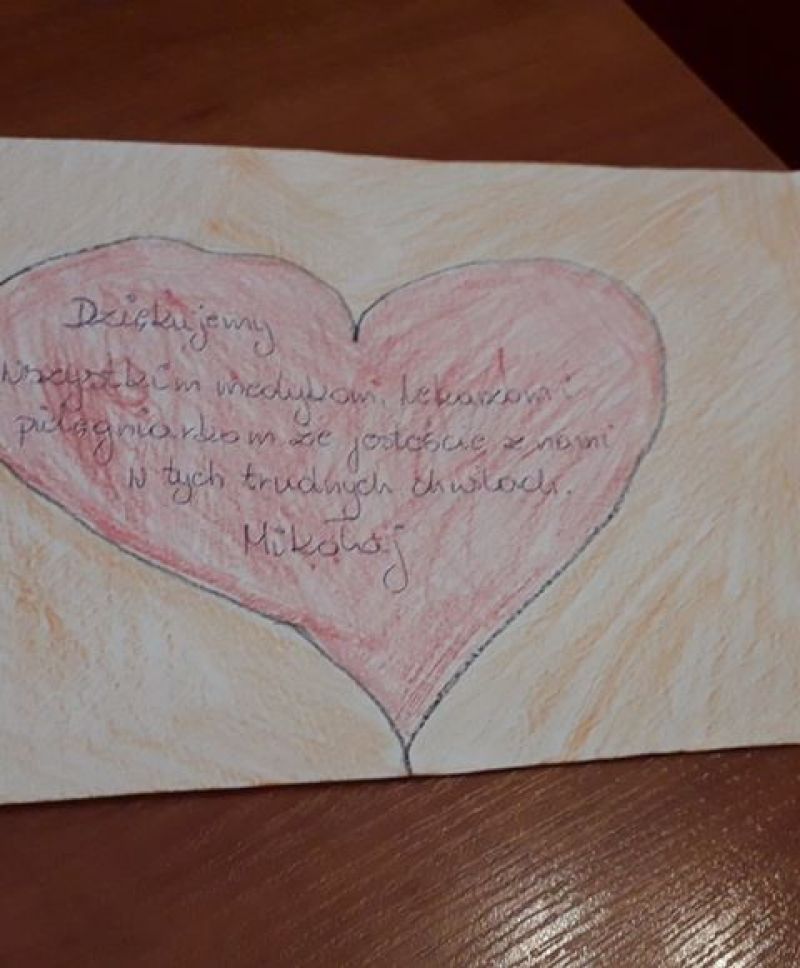 Dziękujemy
Wszystkim medykom, lekarzom i
pielęgniarkom że jesteście z nami
w tych trudnych chwilach.
Mikołaj